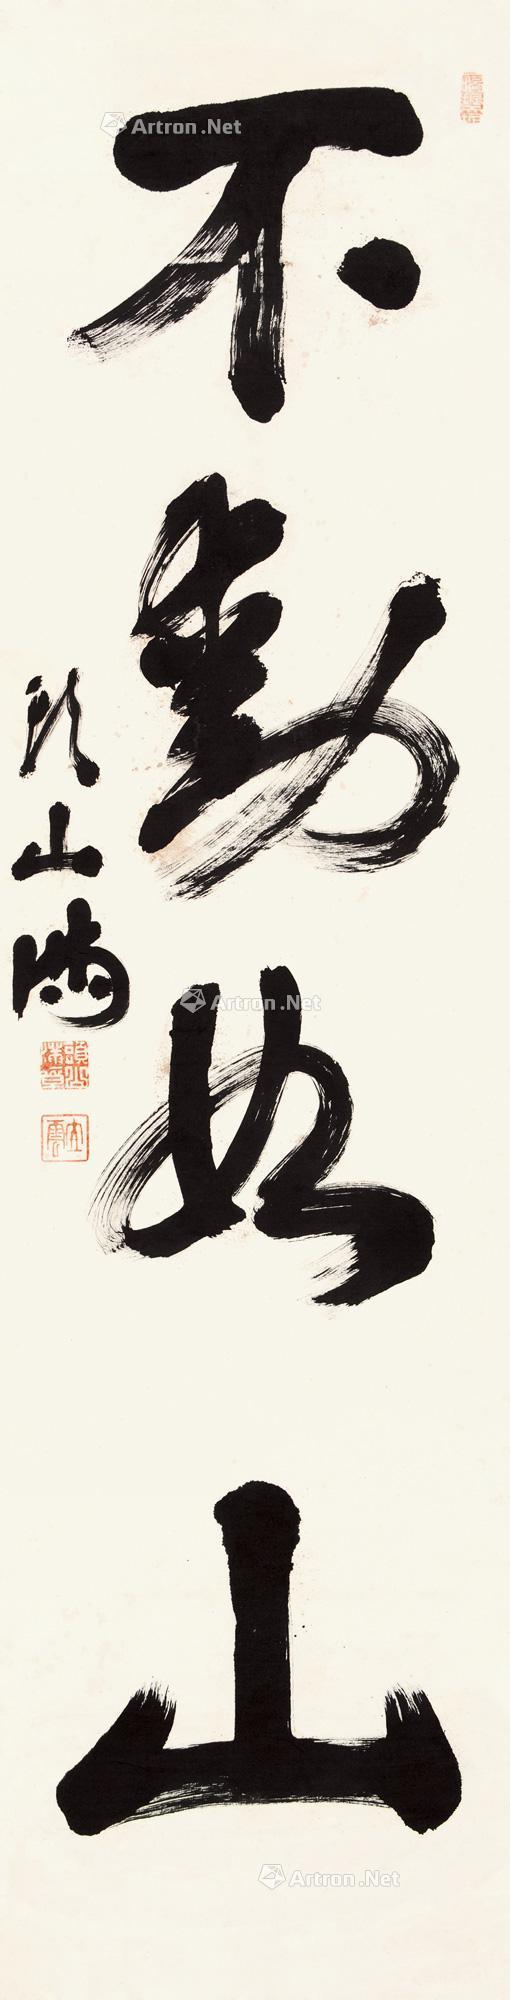 不動如山
頭山満
頭山満章
立雲
Artron.Net
Artron.Net
Artron.Net